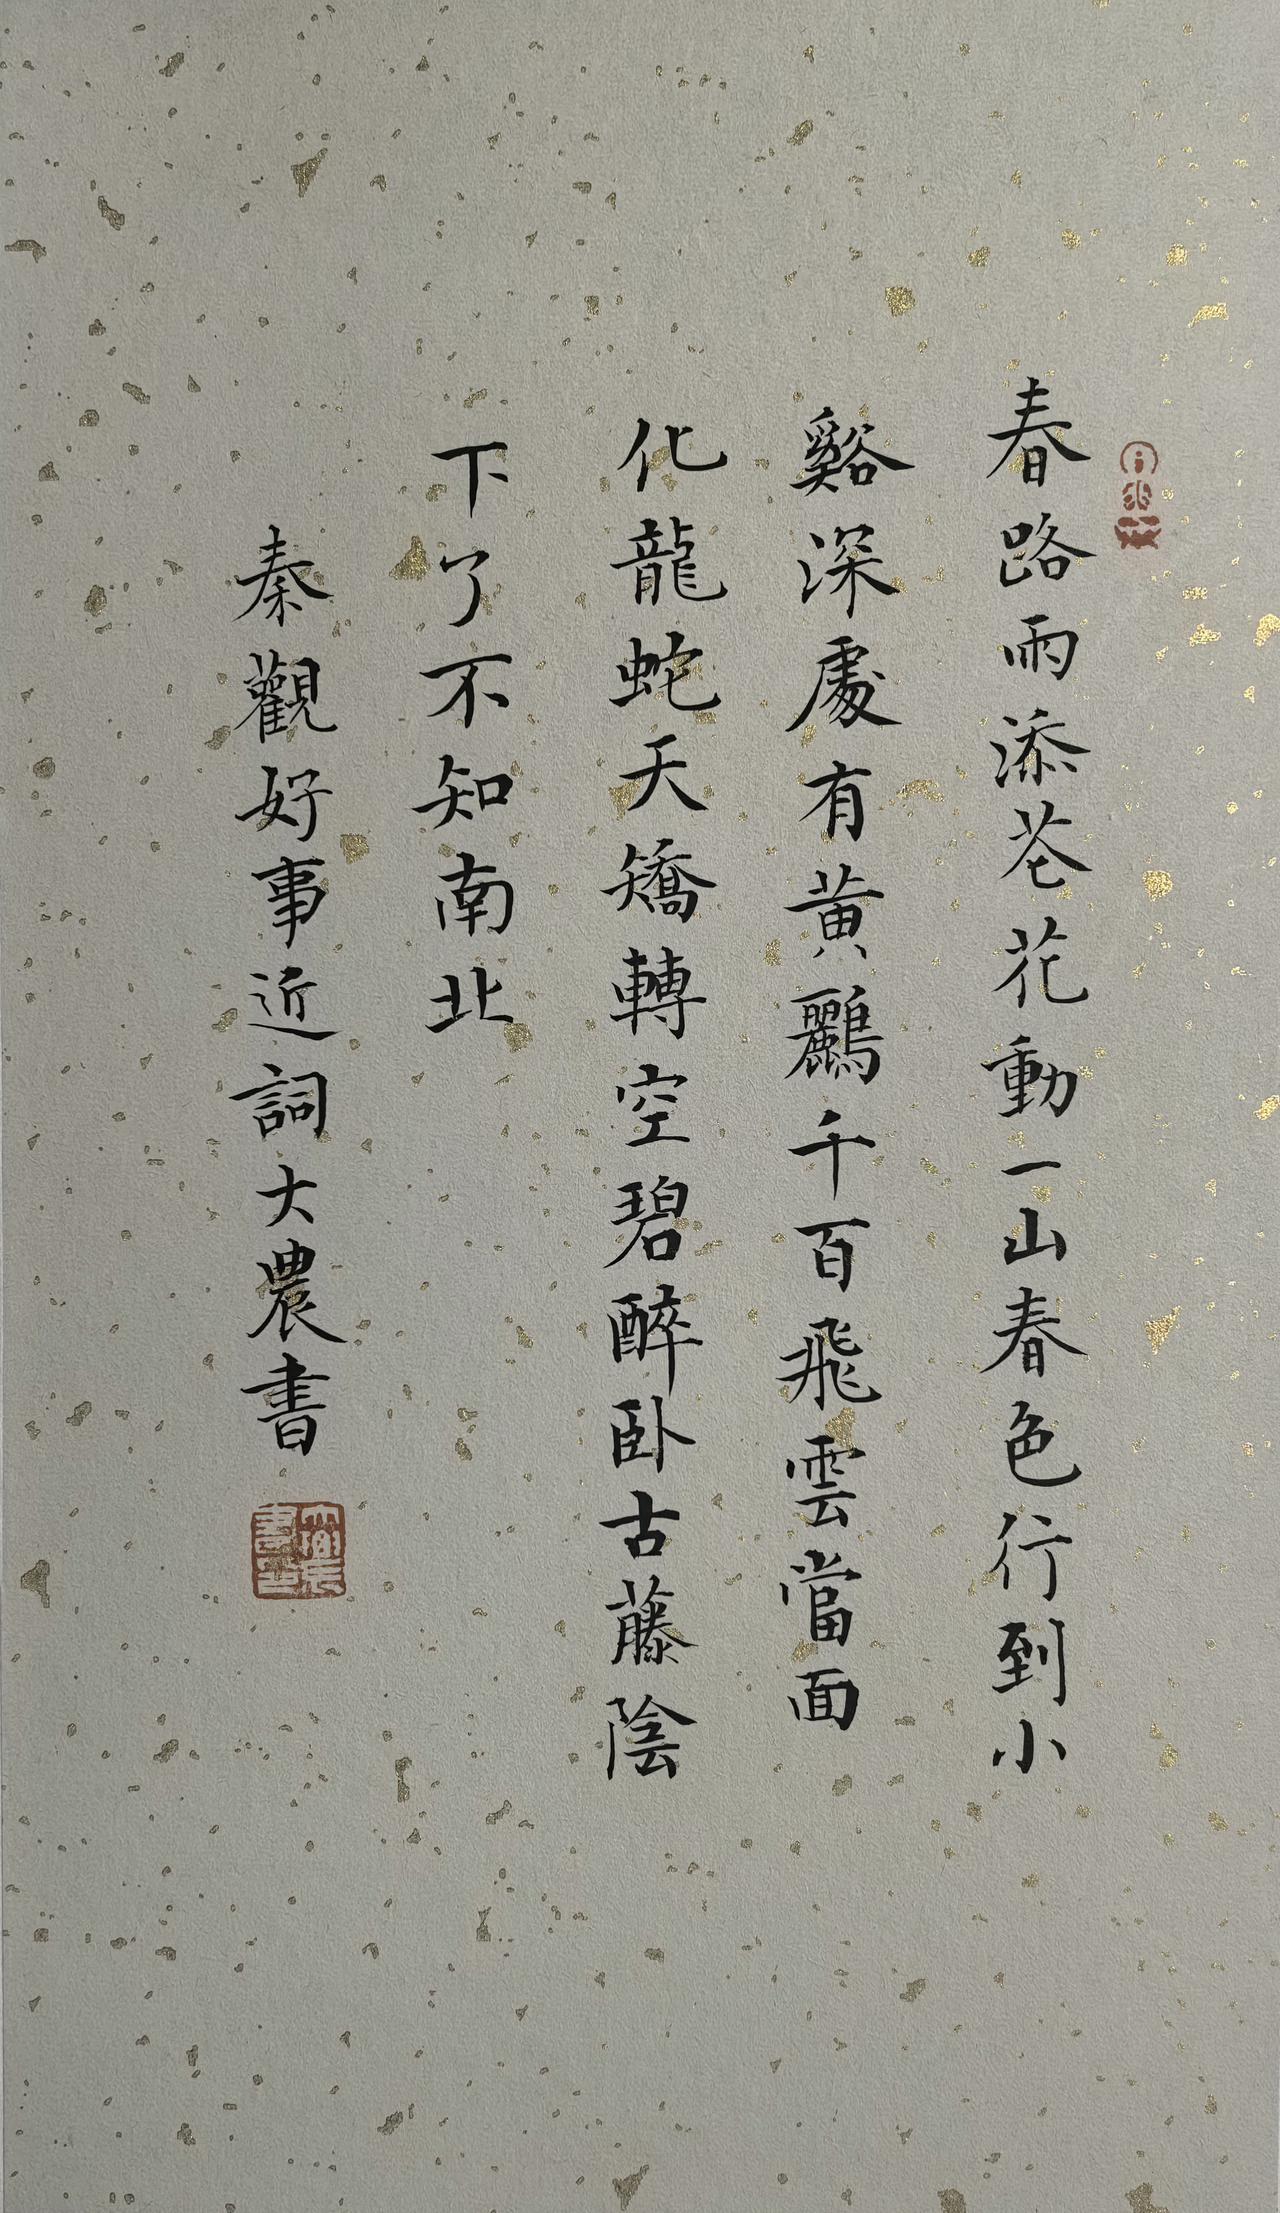 春路雨添花花動一山春色行到小
谿深處有黃鸝千百飛雲當面
化龍蛇天矯轉空碧醉臥古藤陰
下了不知南北
秦觀好事近詞大農書